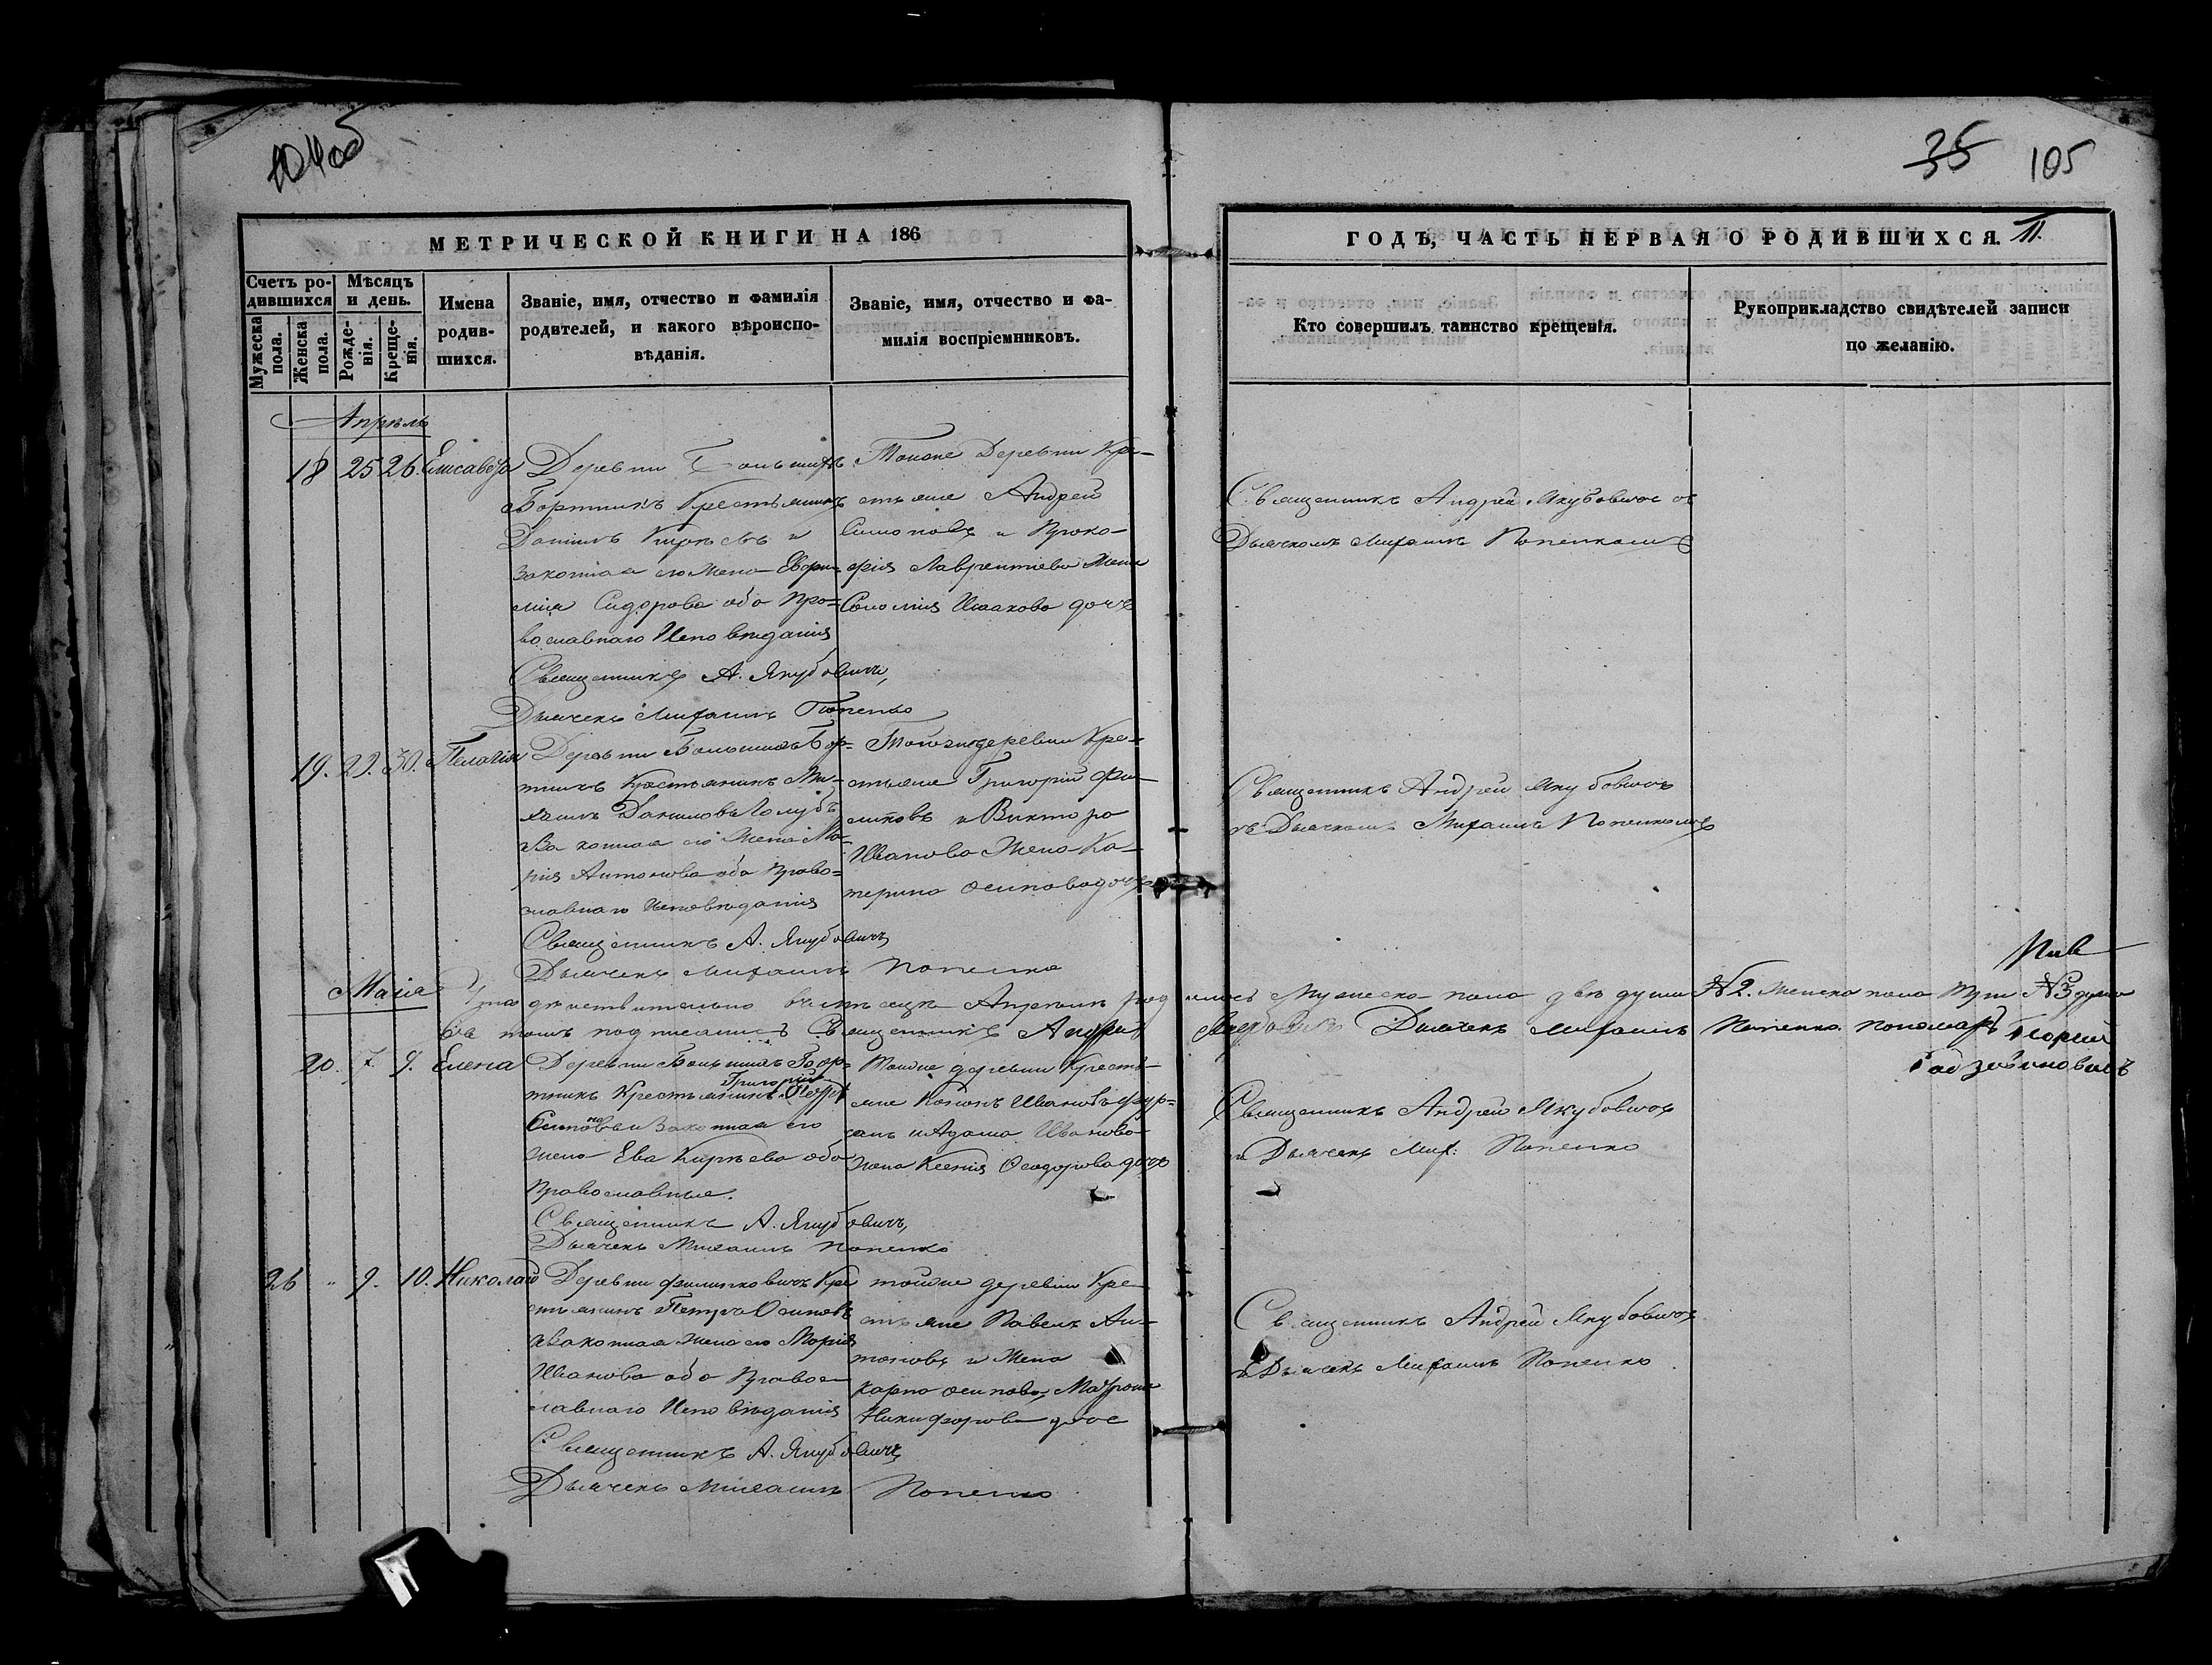 104об
35 105
МЕТРИЧЕСКОЙ КНИГИ НА 186
ГОДЪ, ЧАСТЬ ПЕРВАЯ О РОДИВШИХСЯ.
Счетъ родившихся
Мужеска пола.
Женска пола.
Мѣсяцъ и день.
Рожденія.
Крещенія.
Имена родившихся.
Званіе, имя, отчество и фамилія
родителей, и какого вѣроиспо-
вѣданія.
Званіе, имя, отчество и фа-
милія воспріемниковъ.
Кто совершилъ таинство крещенія.
Рукоприкладство свидѣтелей записи
по желанію.
Апрѣль
18 25 26. Елисавета
Деревни Большихъ
Бортникъ Крестьянинъ
Данiилъ и
Законная его Жена Евфи-
мія Сидорова оба Пра-
вославнаго Исповѣданія
Священникъ А. Якубовичъ,
Дьячекъ Михаилъ Попенко
Тойже Деревни Кре-
стьяне Андрей
Симоновъ и Проко-
фія Лаврентіева Жена
Соломія Исаакова дочь
Священникъ Андрей Якубовичъ съ
Дьячкомъ Михаилъ Попенкомъ
19. 29. 30. Пелагія
Деревни Большихъ Бор-
тникъ Крестьянинъ Ми-
хаилъ Даниловъ Голубъ
Законная его Жена Ма-
рія Антонова оба Право-
славнаго Исповѣданія
Священникъ А. Якубовичъ
Дьячекъ Михаилъ Попенко
Тойже деревни Кре-
стьяне Григорій Фи-
липовъ и Виктора
Иванова Жена Ка-
терина Осипова дочь
Священникъ Андрей Якубовичъ
съ Дьячкомъ Михаилъ Попенкомъ
Маія
Что дѣйствительно въ мѣсяцѣ Апрѣлѣ родилось Мужеска пола двѣ души №2. Женска пола три №3 души
въ томъ подписались Священникъ Андрей Якубовичъ Дьячекъ Михаилъ Попенко. пономарь Георгій
20. 7. 9. Елена
Деревни Большихъ Бор-
Григорій
тникъ Крестьянинъ
Осиповъ и Законная его
жена Ева Кирѣева оба
Православные.
Священникъ А. Якубовичъ,
Дьячекъ Михаилъ Попенко
Тойже деревни Кресть-
яне Кононъ Ивановъ Фур-
сать и Адама Иванова
Жена Ксенія Феодорова дочь
Священникъ Андрей Якубовичъ
и Дьячекъ Мих: Попенко
26 " 9. 10. Николай
Деревни Филипковичъ Кре
стьянинъ Петръ Осиповъ
и Законная жена его Марія
Иванова оба Правос-
лавнаго Исповѣданія
Священникъ А. Якубовичъ
Дьячекъ Михаилъ Попенко
тойже деревни Кре-
стьяне Павелъ Ан-
тоновъ и Жена
Карпа Осипова, Матрона
Никифорова дочь
Священникъ Андрей Якубовичъ
и Дьячекъ Михаилъ Попенко.